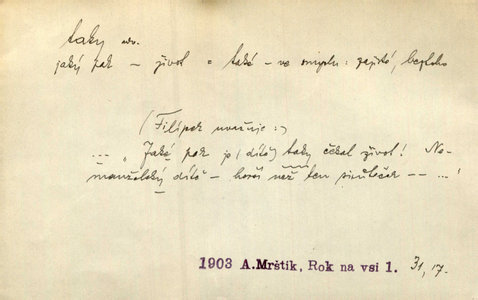 taky adv.
jaký pak – život = také – ve smyslu : zajisté,
(Filípek uvažuje :)
... „Jaké pak je (dítě) taky čekal život! Ne-
manželský dítě – horší než ten siroteček – – ..."
1903 A.Mrštík, Rok na vsi 1. 31, 17.